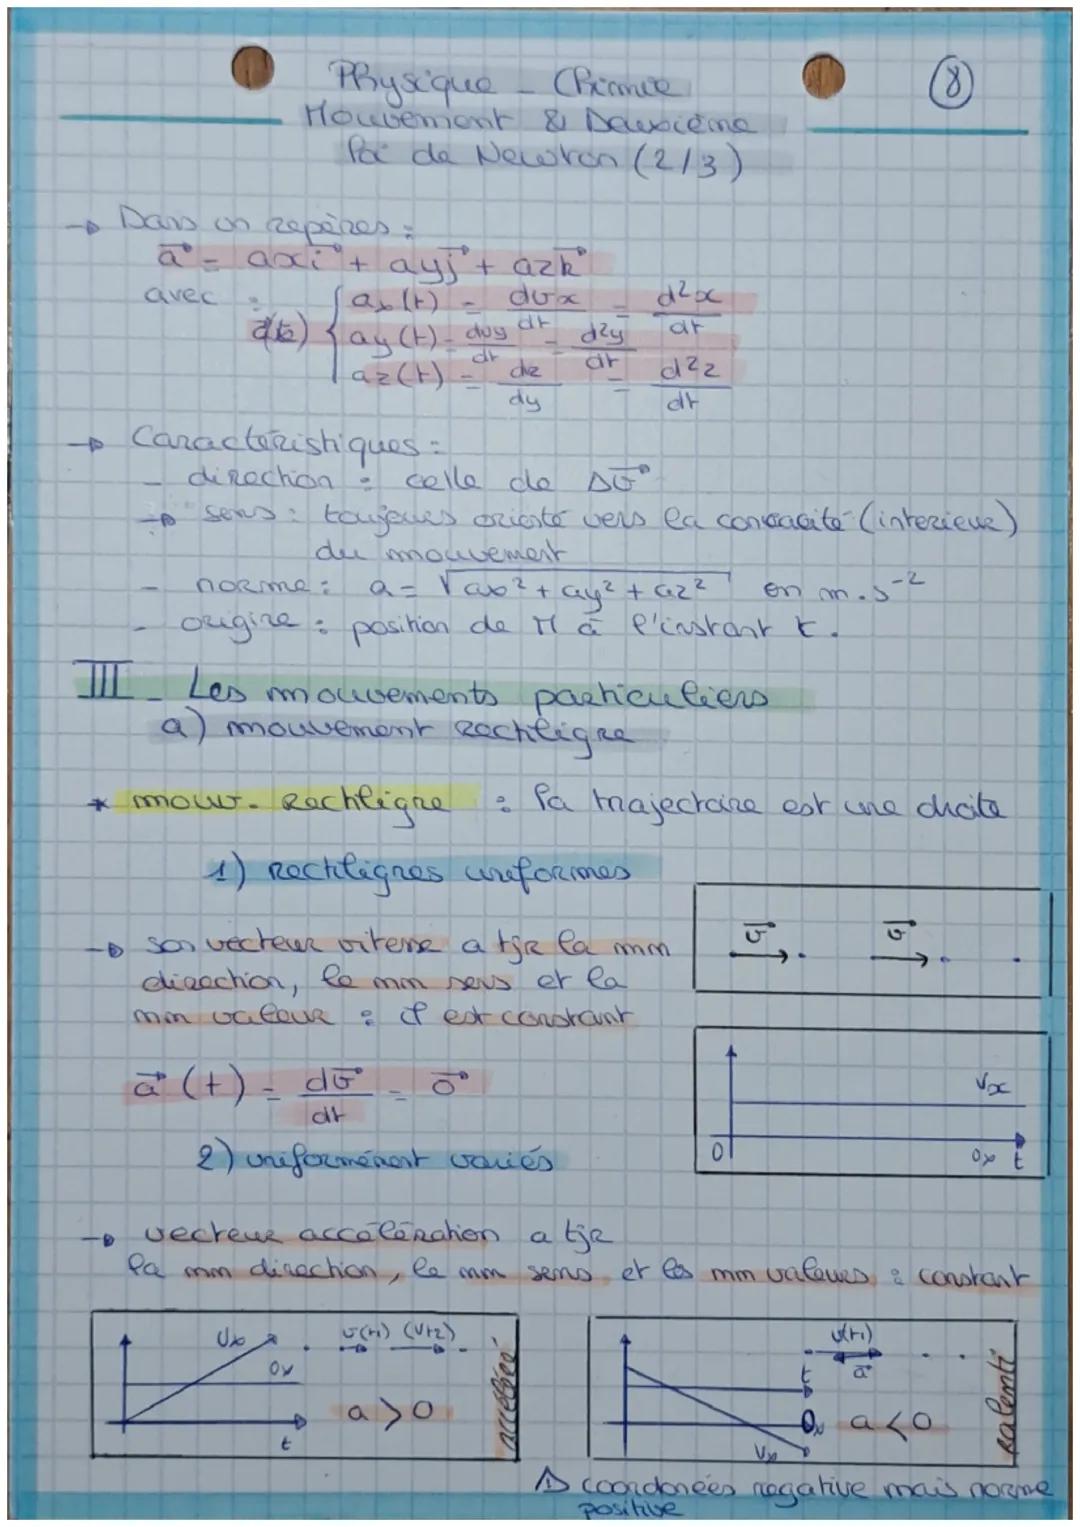 Physique - Chimie
⑧
Mouvement & Deuxième
loi de Newton (2/3)
→ Dans un repères :
a⃗ = axi⃗ + ayj⃗ + azk⃗
avec : a(t) { ax(t) = dvx/dt = d²x/dt
ay(t) = dvy/dt = d²y/dt
az(t) = dz/dy = d²z/dt
→ Caractéristiques :
- direction : celle de Δv⃗
→ sens : toujours orienté vers la concacité (interieur)
du mouvement
- norme : a = √ax² + ay² + az² en m.s⁻²
- origine : position de M à l'instant t.
III - Les mouvements particuliers
a) mouvement rectligne
* mouv. Rectligne : la trajectoire est une droite
1) rectlignes uniformes
→ son vecteur vitesse a tjr la mm
direction, le mm sens et la
mm valeur : il est constant
v⃗ v⃗
a⃗ (t) = dv⃗/dt = o⃗
vx
0 ax t
2) uniformément variés
→ vecteur accélération a tjr
la mm direction, le mm sens et les mm valeurs : constant
vx ax t
v(t1) (vt2)
a > 0
accéléré
t ax vx
v(t1)
a⃗
a < 0
ralenti
⚠ coordonées negative mais norme
positive